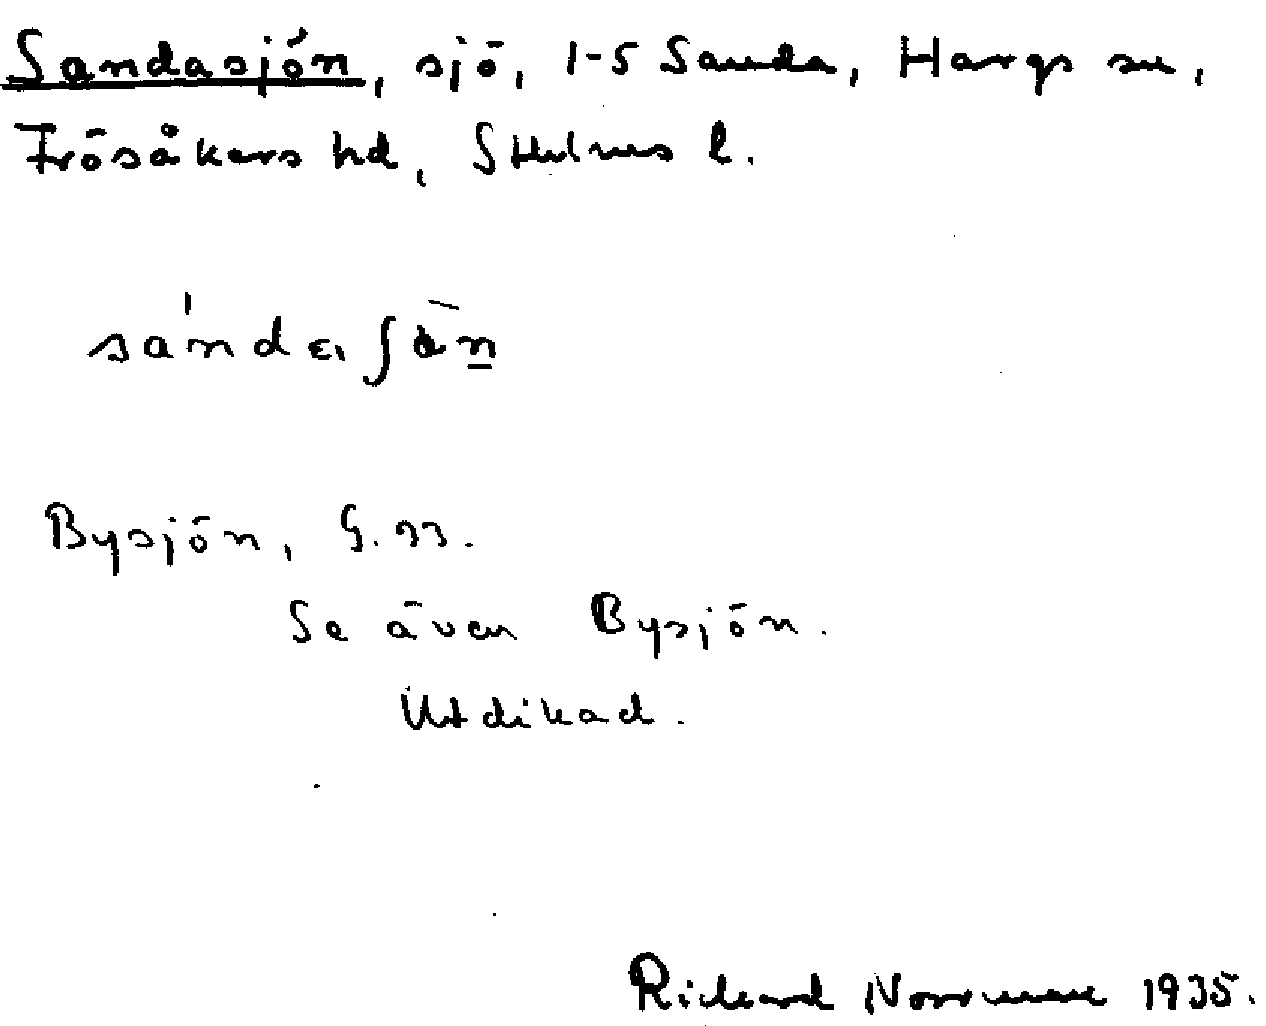 Sandasjön, sjö, 1-5 Sanda, Hargs sn,
Frösåkers hd, Sthlms l.
Bysjön, G. nn.
Se även Bysjön.
Utdikad.
Richard Norrman 1935.